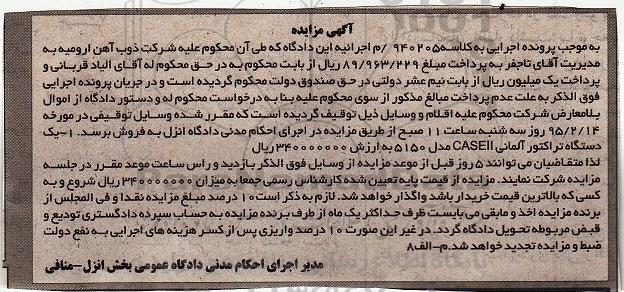 آگهی مزایده
به موجب پرونده اجرایی به کلاسه ۹۴۰۲۰۵ /م اجرائیه این دادگاه که طی آن محکوم علیه شرکت ذوب آهن ارومیه به
مدیریت آقای تاجفر به پرداخت مبلغ ۸۹/۹۶۳/۲۲۹ ریال از بابت محکوم به در حق محکوم له آقای الیاد قربانی و
پرداخت یک میلیون ریال از بابت نیم عشر دولتی در حق صندوق دولت محکوم گردیده است و در جریان پرونده اجرایی
فوق الذکر به علت عدم پرداخت مبالغ مذکور از سوی محکوم علیه بنا به درخواست محکوم له و دستور دادگاه از اموال
بلامعارض شرکت محکوم علیه اقلام و وسایل ذیل توقیف گردیده است که مقرر شده وسایل توقیفی در مورخه
۹۵/۲/۱۴ روز سه شنبه ساعت ۱۱ صبح از طریق مزایده در اجرای احکام مدنی دادگاه انزل به فروش برسد. ۱-یک
دستگاه تراکتور آلمانی CASEII مدل ۵۱۵۰ به ارزش ۳۴۰۰۰۰۰۰۰ ریال
لذا متقاضیان می توانند ۵ روز قبل از موعد مزایده از وسایل فوق الذکر بازدید و راس ساعت موعد مقرر در جلسه
مزایده شرکت نمایند. مزایده از قیمت پایه تعیین شده کارشناس رسمی جمعا به میزان ۳۴۰۰۰۰۰۰۰ ریال شروع و به
کسی که بالاترین قیمت خریدار باشد واگذار خواهد شد. لازم به ذکر است ۱۰ درصد مبلغ مزایده نقدا و فی المجلس از
برنده مزایده اخذ و مابقی می بایست ظرف حداکثر یک ماه از طرف برنده مزایده به حساب سپرده دادگستری تودیع و
قبض مربوطه تحویل گردد. در غیر این صورت ۱۰ درصد واریزی پس از کسر هزینه های اجرایی به نفع دولت
ضبط و مزایده تجدید خواهد شد.م-الف۸
مدیر اجرای احکام مدنی دادگاه عمومی بخش انزل-منافی